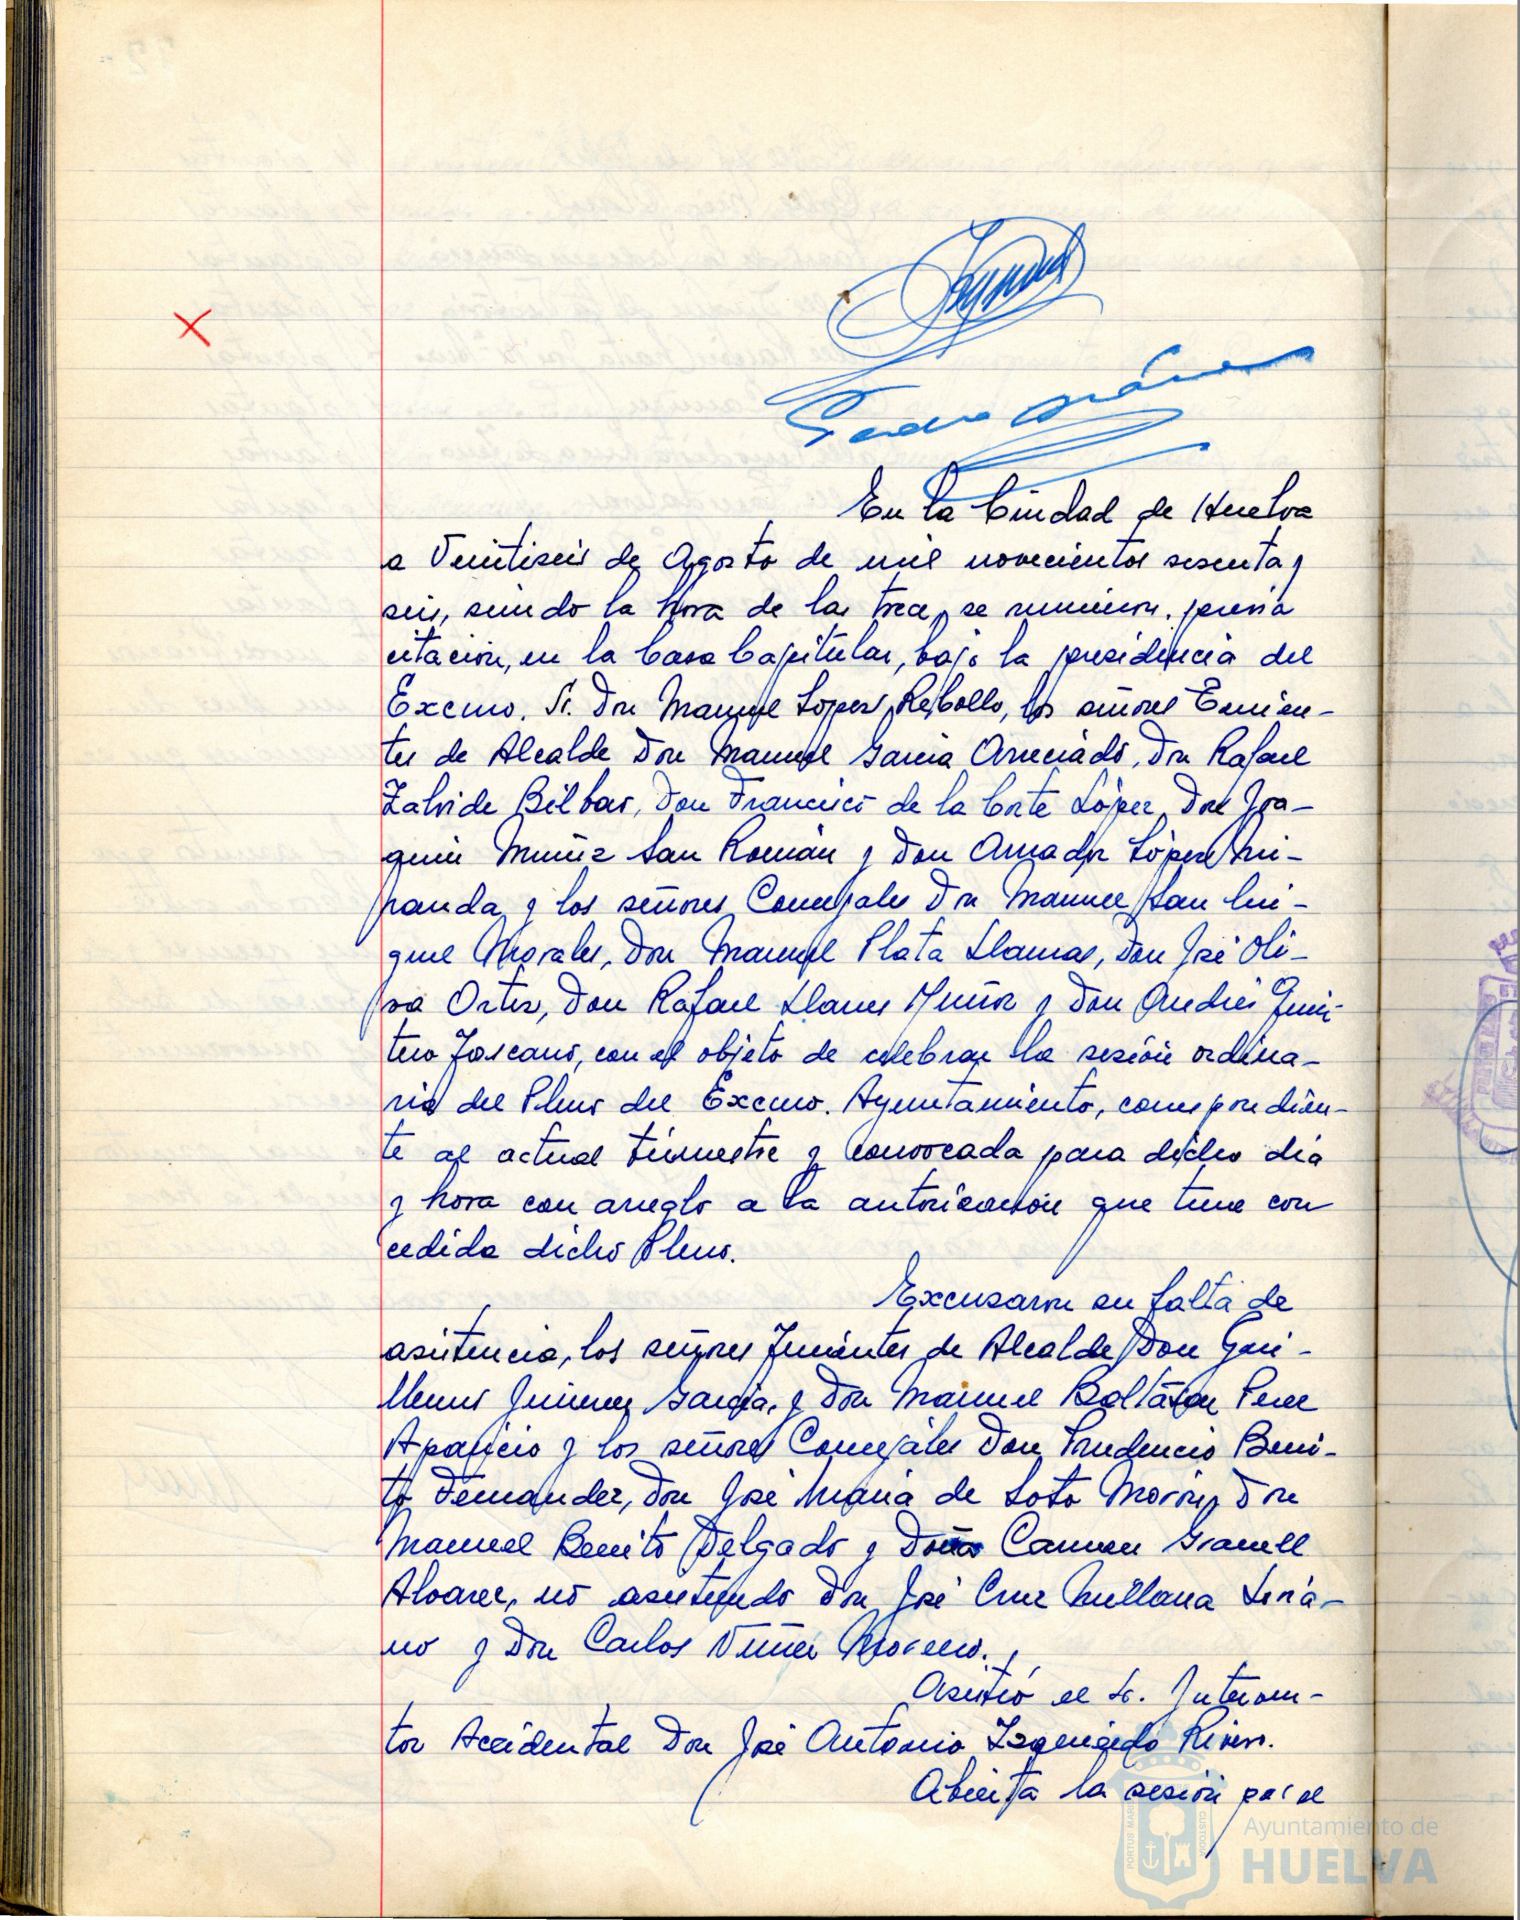 En la Ciudad de Huelva
a Veintiseis de Agosto de mil novecientos sesenta y
seis, siendo la hora de las trece, se reunieron, previa
citación, en la Casa Capitular, bajo la presidencia del
Excmo. Sr. Don Manuel López Rebollo, los señores Tenien-
tes de Alcalde Don Manuel Garcia Arreciado, Don Rafael
Zalvide Bilbao, Don Francisco de la Corte López, Don Joa-
quin Muñiz San Román y Don Amador López Mi-
randa, y los señores Concejales Don Manuel San Mi-
guel Morales, Don Manuel Plata Llamas, Don José Oli-
va Ortiz, Don Rafael Llanes Muñoz y Don Andrés Quin-
tero Toscano, con el objeto de celebrar la sesión ordina-
ria del Pleno del Excmo. Ayuntamiento, correspondien-
te al actual trimestre y convocada para dicho dia
y hora con arreglo a la autorización que tiene con
cedida dicho Pleno.
Excusaron su falta de
asistencia, los señores Tenientes de Alcalde Don Gui-
llermo Jimenez Garcia, y Don Manuel Baltasar Perez
Aparicio y los señores Concejales Don Prudencio Beni-
to Fernandez, Don José Maria de Soto Moron, Don
Manuel Benito Delgado y Doña Carmen Granell
Alvarez, no asistiendo Don José Cruz Millana
y Don Carlos Moreno.
Asistió el Sr. Interven-
tor Accidental Don José Antonio Izquierdo Rivero.
Abierta la sesión por el
PORTUS MARIS
CUSTODIA
Ayuntamiento de
HUELVA